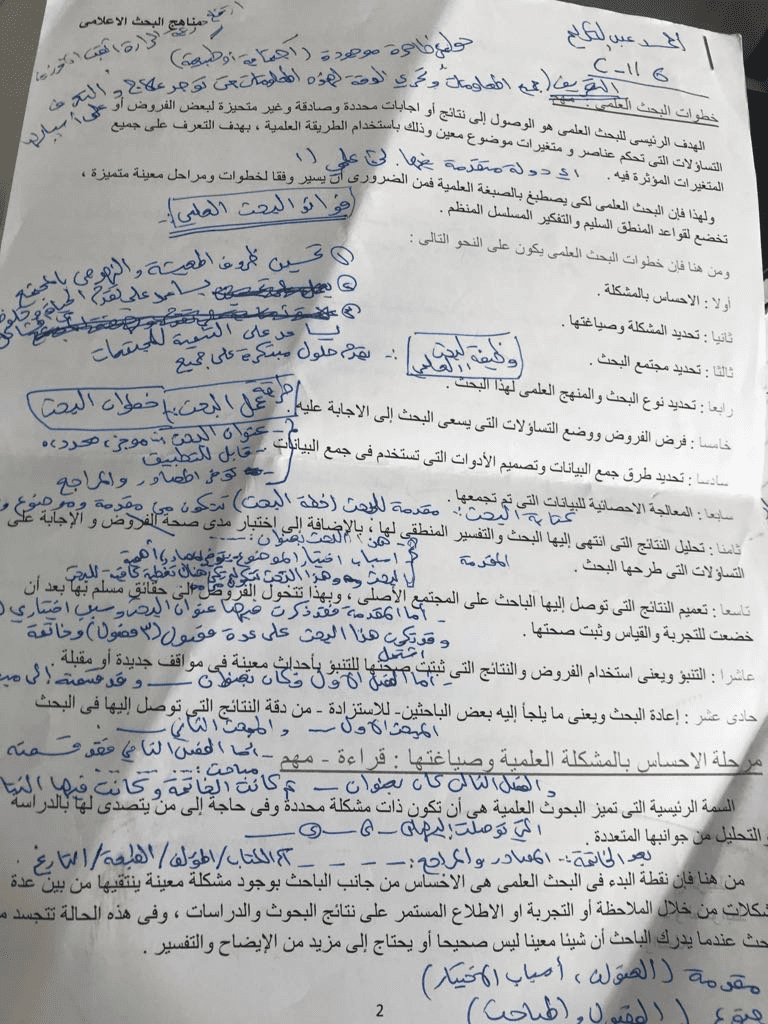 مناهج البحث الاعلامى
حول ظاهرة موجودة (اجتماعية أو طبيعية)
التعريف (جمع المعلومات وتحري الدقة لهذه المعلومات حتى توجد علاج والتعرف على أسبابها
خطوات البحث العلمى : مهم
الهدف الرئيسى للبحث العلمى هو الوصول إلى نتائج أو اجابات محددة وصادقة وغير متحيزة لبعض الفروض أو
التساؤلات التى تحكم عناصر و متغيرات موضوع معين وذلك باستخدام الطريقة العلمية ، بهدف التعرف على جميع
المتغيرات المؤثرة فيه .
اى دولة متقدمة
ولهذا فإن البحث العلمى لكى يصطبغ بالصبغة العلمية فمن الضرورى أن يسير وفقا لخطوات ومراحل معينة متميزة ،
تخضع لقواعد المنطق السليم والتفكير المسلسل المنظم .
فوائد البحث العلمي :-
ومن هنا فإن خطوات البحث العلمى يكون على النحو التالى :
① تحسين ظروف المعيشة والنهوض بالمجتمع
أولا : الاحساس بالمشكلة .
② يساعد على تقدم الحياة
ثانيا : تحديد المشكلة وصياغتها .
③ يساعد على التنمية للمجتمعات
ثالثا : تحديد مجتمع البحث .
وظيفة البحث العلمى :- يقدم حلول مبتكرة على جميع
رابعا : تحديد نوع البحث والمنهج العلمى لهذا البحث .
طريقة عمل البحث :- خطوات البحث
خامسا : فرض الفروض ووضع التساؤلات التى يسعى البحث إلى الاجابة عليه .
- عنوان البحث :- موجز، محدد،
سادسا : تحديد طرق جمع البيانات وتصميم الأدوات التى تستخدم فى جمع البيانات
- قابل للتطبيق
- توفر المصادر والمراجع
سابعا : المعالجة الاحصائية للبيانات التى تم تجمعها .
كتابة البحث :- مقدمة للبحث (خطة البحث) تتكون من مقدمة وموضوع و
ثامنا : تحليل النتائج التى انتهى إليها البحث والتفسير المنطقى لها ، بالإضافة إلى اختبار مدى صحة الفروض و الإجابة على
التساؤلات التى طرحها البحث .
المقدمة
- اسباب اختيار الموضوع
تاسعا : تعميم النتائج التى توصل إليها الباحث على المجتمع الأصلى ، وبهذا تتحول الفروض إلى حقائق مسلم بها بعد أن
خضعت للتجربة والقياس وثبت صحتها .
- أما المقدمة فقد ذكرت فيها عنوان البحث وسبب اختياري
وقد اشتمل هذا البحث على عدة فصول (٣ فصول) وخاتمة
عاشرا : التنبؤ ويعنى استخدام الفروض والنتائج التى ثبتت صحتها للتنبؤ بأحداث معينة فى مواقف جديدة أو مقبلة .
- أما الفصل الاول فكان بعنوان — وقد قسمته إلى
حادى عشر : إعادة البحث ويعنى ما يلجأ إليه بعض الباحثين- للاستزادة - من دقة النتائج التى توصل إليها فى البحث
المبحث الاول — والمبحث الثاني —
- أما الفصل الثاني فقد قسمته
مرحلة الاحساس بالمشكلة العلمية وصياغتها : قراءة - مهم
مباحث :-
والفصل الثالث كان بعنوان — ثم كانت الخاتمة وكانت فيها
السمة الرئيسية التى تميز البحوث العلمية هى أن تكون ذات مشكلة محددة وفى حاجة إلى من يتصدى لها بالدراسة
و التحليل من جوانبها المتعددة .
التي توصلت إليها
بعد الخاتمة :- المصادر والمراجع :- اسم الكتاب/المؤلف/الطبعة/التاريخ
من هنا فإن نقطة البدء فى البحث العلمى هى الاحساس من جانب الباحث بوجود مشكلة معينة ينتقيها من بين عدة
شكلات من خلال الملاحظة أو التجربة او الاطلاع المستمر على نتائج البحوث والدراسات ، وفى هذه الحالة تتجسد
حث عندما يدرك الباحث أن شيئا معينا ليس صحيحا أو يحتاج إلى مزيد من الإيضاح والتفسير .
مقدمة (العنوان، أسباب اختيار)
(الفصول والمباحث)
2